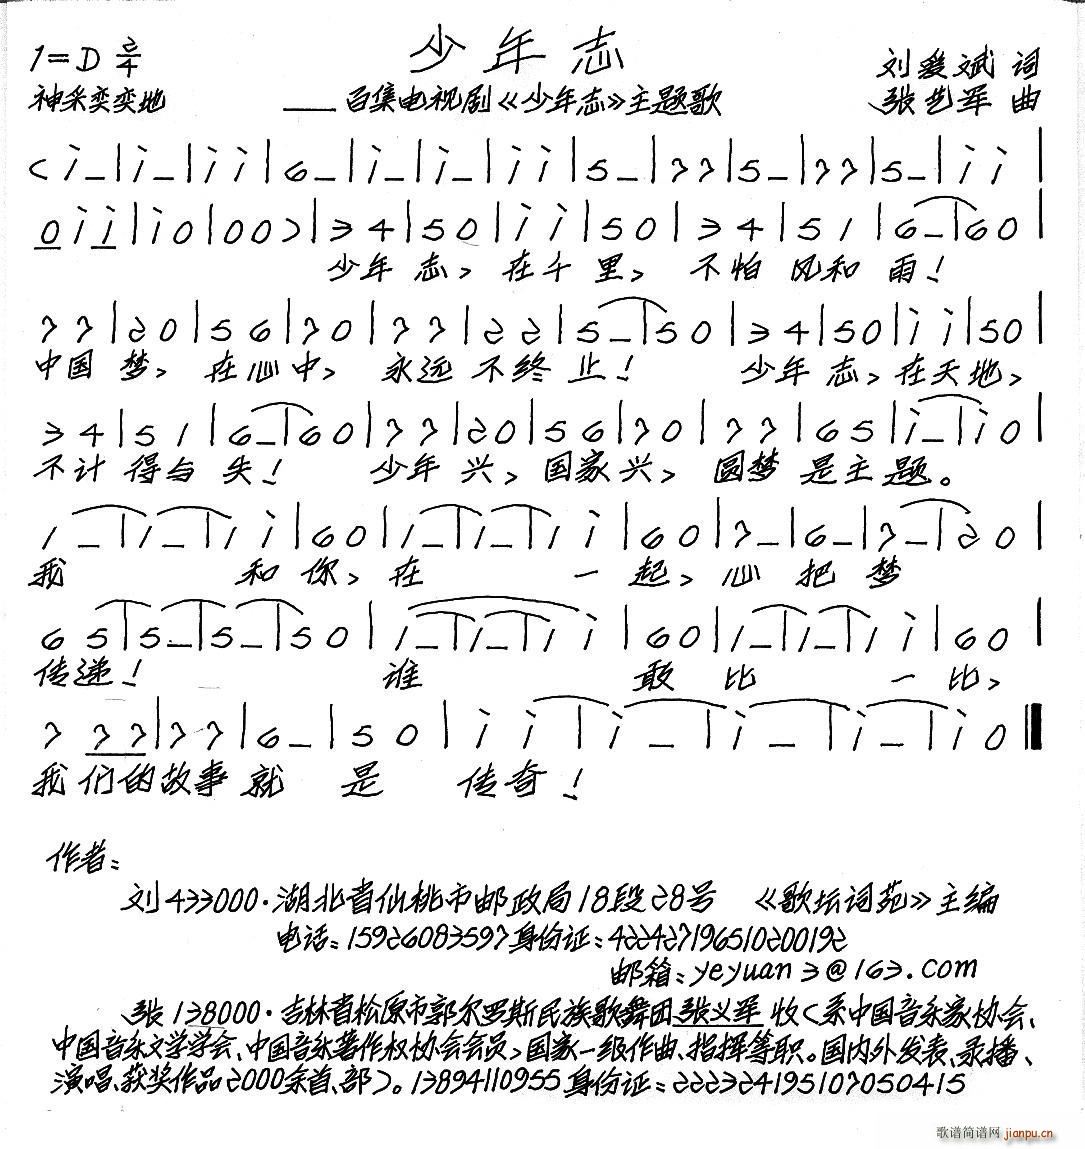 1=D 2/4 少年志 刘爱斌 词
神采奕奕地 ——百集电视剧《少年志》主题歌 张艺军 曲
(i – | i – | i i | 6 – | i – | i – | i i | 5 – | 7 7 | 5 – | 7 7 | 5 – | i i |
0 i i | i 0 | 0 0 ) | 3 4 | 5 0 | i i | 5 0 | 3 4 | 5 1 | 6 – | 6 0 |
少年 志, 在千 里, 不怕 风和 雨!
7 7 | 2 0 | 5 6 | 7 0 | 7 7 | 2 2 | 5 – | 5 0 | 3 4 | 5 0 | i i | 5 0 |
中国 梦, 在心 中, 永远 不终 止! 少年 志, 在天 地,
3 4 | 5 1 | 6 – | 6 0 | 7 7 | 2 0 | 5 6 | 7 0 | 7 7 | 6 5 | i – | i 0 |
不计 得与 失! 少年 兴, 国家 兴, 圆梦 是主 题。
1 – | 1 – | 1 i | 6 0 | 1 – | 1 – | 1 i | 6 0 | 7 – | 6 – | 7 – | 2 0 |
我 和 你, 在 一 起, 心 把 梦
6 5 | 5 – | 5 – | 5 0 | 1 – | 1 – | 1 i | 6 0 | 1 – | 1 – | 1 i | 6 0 |
传递! 谁 敢 比 一 比,
7 7 7 | 7 7 | 6 – | 5 0 | i i | i – | i – | i – | i 0 ‖
我们的故事 就 是 传奇!
作者:
刘433000·湖北省仙桃市邮政局18段28号 《歌坛词苑》主编
电话:15926083597身份证:422427196510200192
邮箱:yeyuan3@163.com
张138000·吉林省松原市郭尔罗斯民族歌舞团张义军 收(系中国音乐家协会、
中国音乐文学学会、中国音乐著作权协会会员,国家一级作曲、指挥等职。国内外发表、录播、
演唱、获奖作品2000余首、部)。13894110955身份证:222324195107050415
歌谱简谱网 jianpu.cn